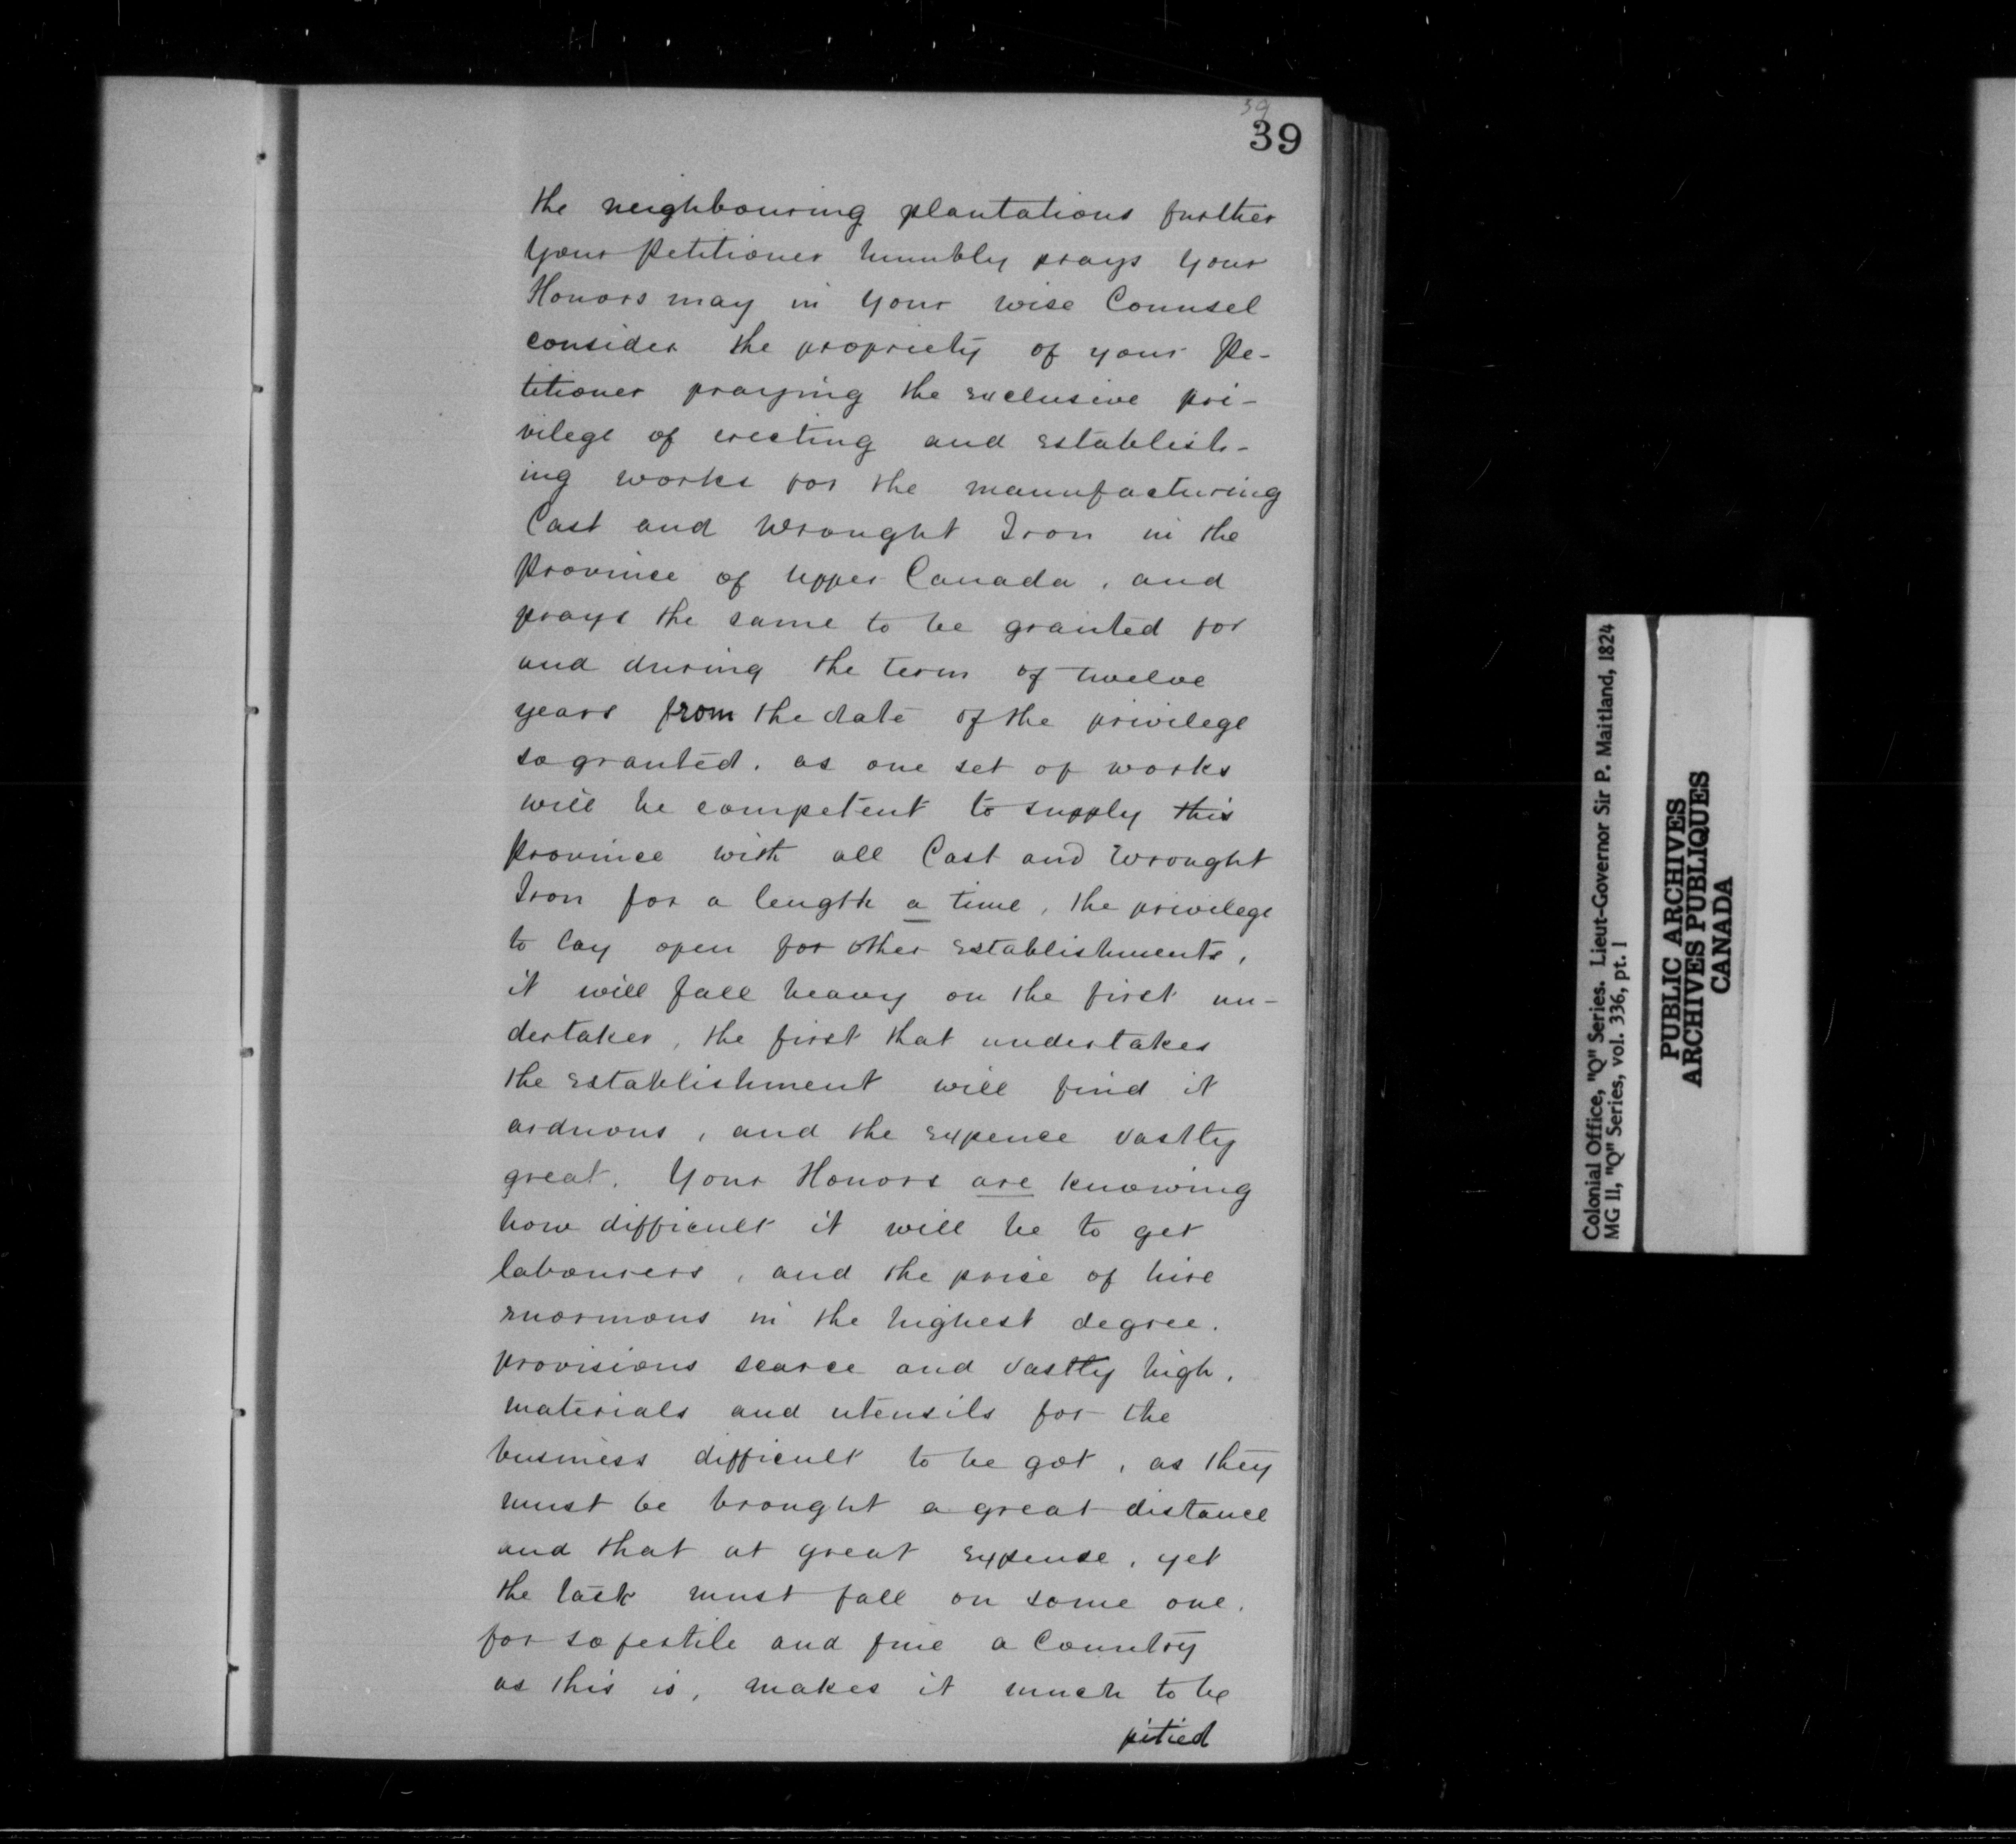 39
39
the neighbouring plantations further
Your Petitioner humbly prays Your
Honors may in Your wise Counsel
consider the propriety of your Pe-
titioner praying the exclusive pri-
vilege of erecting and establish-
ing works for the manufacturing
Cast and Wrought Iron in the
Province of Upper Canada, and
prays the same to be granted for
and during the term of twelve
years from the date of the privilege
so granted. as one set of works
will be competent to supply this
province with all Cast and Wrought
Iron for a length a time, the privilege
to lay open for other establishments,
it will fall heavy on the first un-
dertaker, the first that undertakes
the establishment will find it
arduous, and the expence vastly
great. Your Honors are knowing
how difficult it will be to get
labourers, and the prise of hire
enormous in the highest degree.
provisions scarce and vastly high,
materials and utensils for the
business difficult to be got, as they
must be brought a great distance
and that at great expense, yet
the task must fall on some one.
for so fertile and fine a Country
as this is, makes it much to be
pitied
Colonial Office, "Q" Series. Lieut-Governor Sir P. Maitland, 1824
MG 11, "Q" Series, vol. 336, pt. 1
PUBLIC ARCHIVES
ARCHIVES PUBLIQUES
CANADA